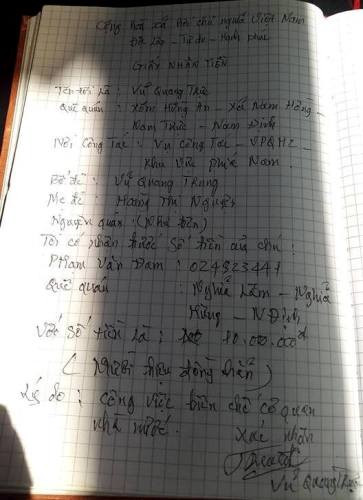 Cộng hoà xã hội chủ nghĩa Việt Nam
Độc lập - Tự do - Hạnh phúc
GIẤY NHẬN TIỀN
Tên tôi là : Vũ Quang Thức
Quê quán : Xóm Hồng An - Xã Nam Hồng -
Nam Trực - Nam Định
Nơi Công Tác : Vụ Công Tác - VPQH2 -
Khu vực phía Nam
Bố đẻ : Vũ Quang Trung
Mẹ đẻ : Hoàng Thị Nguyên
Nguyên quán : (Như trên)
Tôi có nhận được số tiền của chú :
Phạm Văn Đam : 024923441
Quê quán : Nghĩa Lâm - Nghĩa
Hưng - NĐịnh
Với số tiền là : 10.000.000đ
(Mười triệu đồng chẵn)
Lý do : công việc biên chế cơ quan
nhà nước.
Xác nhận
Vũ Quang Thức